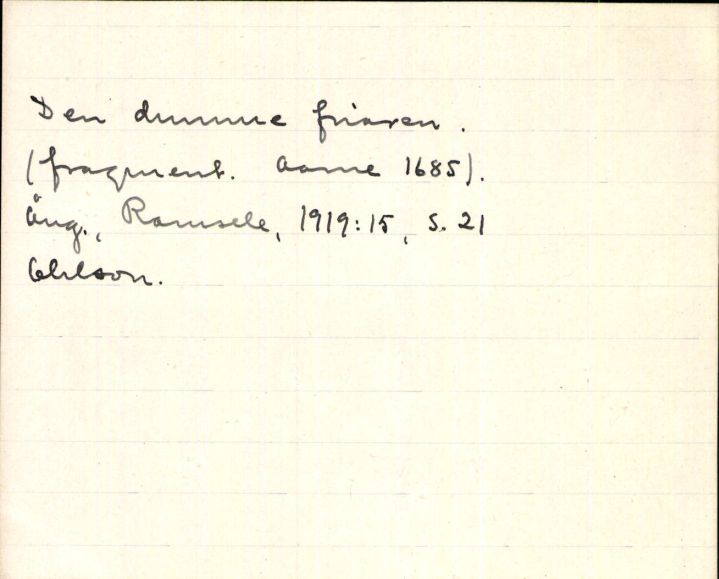 Den dumme friaren.
(fragment. Aarne 1685).
Ång., Ramsele, 1919:15, s. 21
Ohlson.